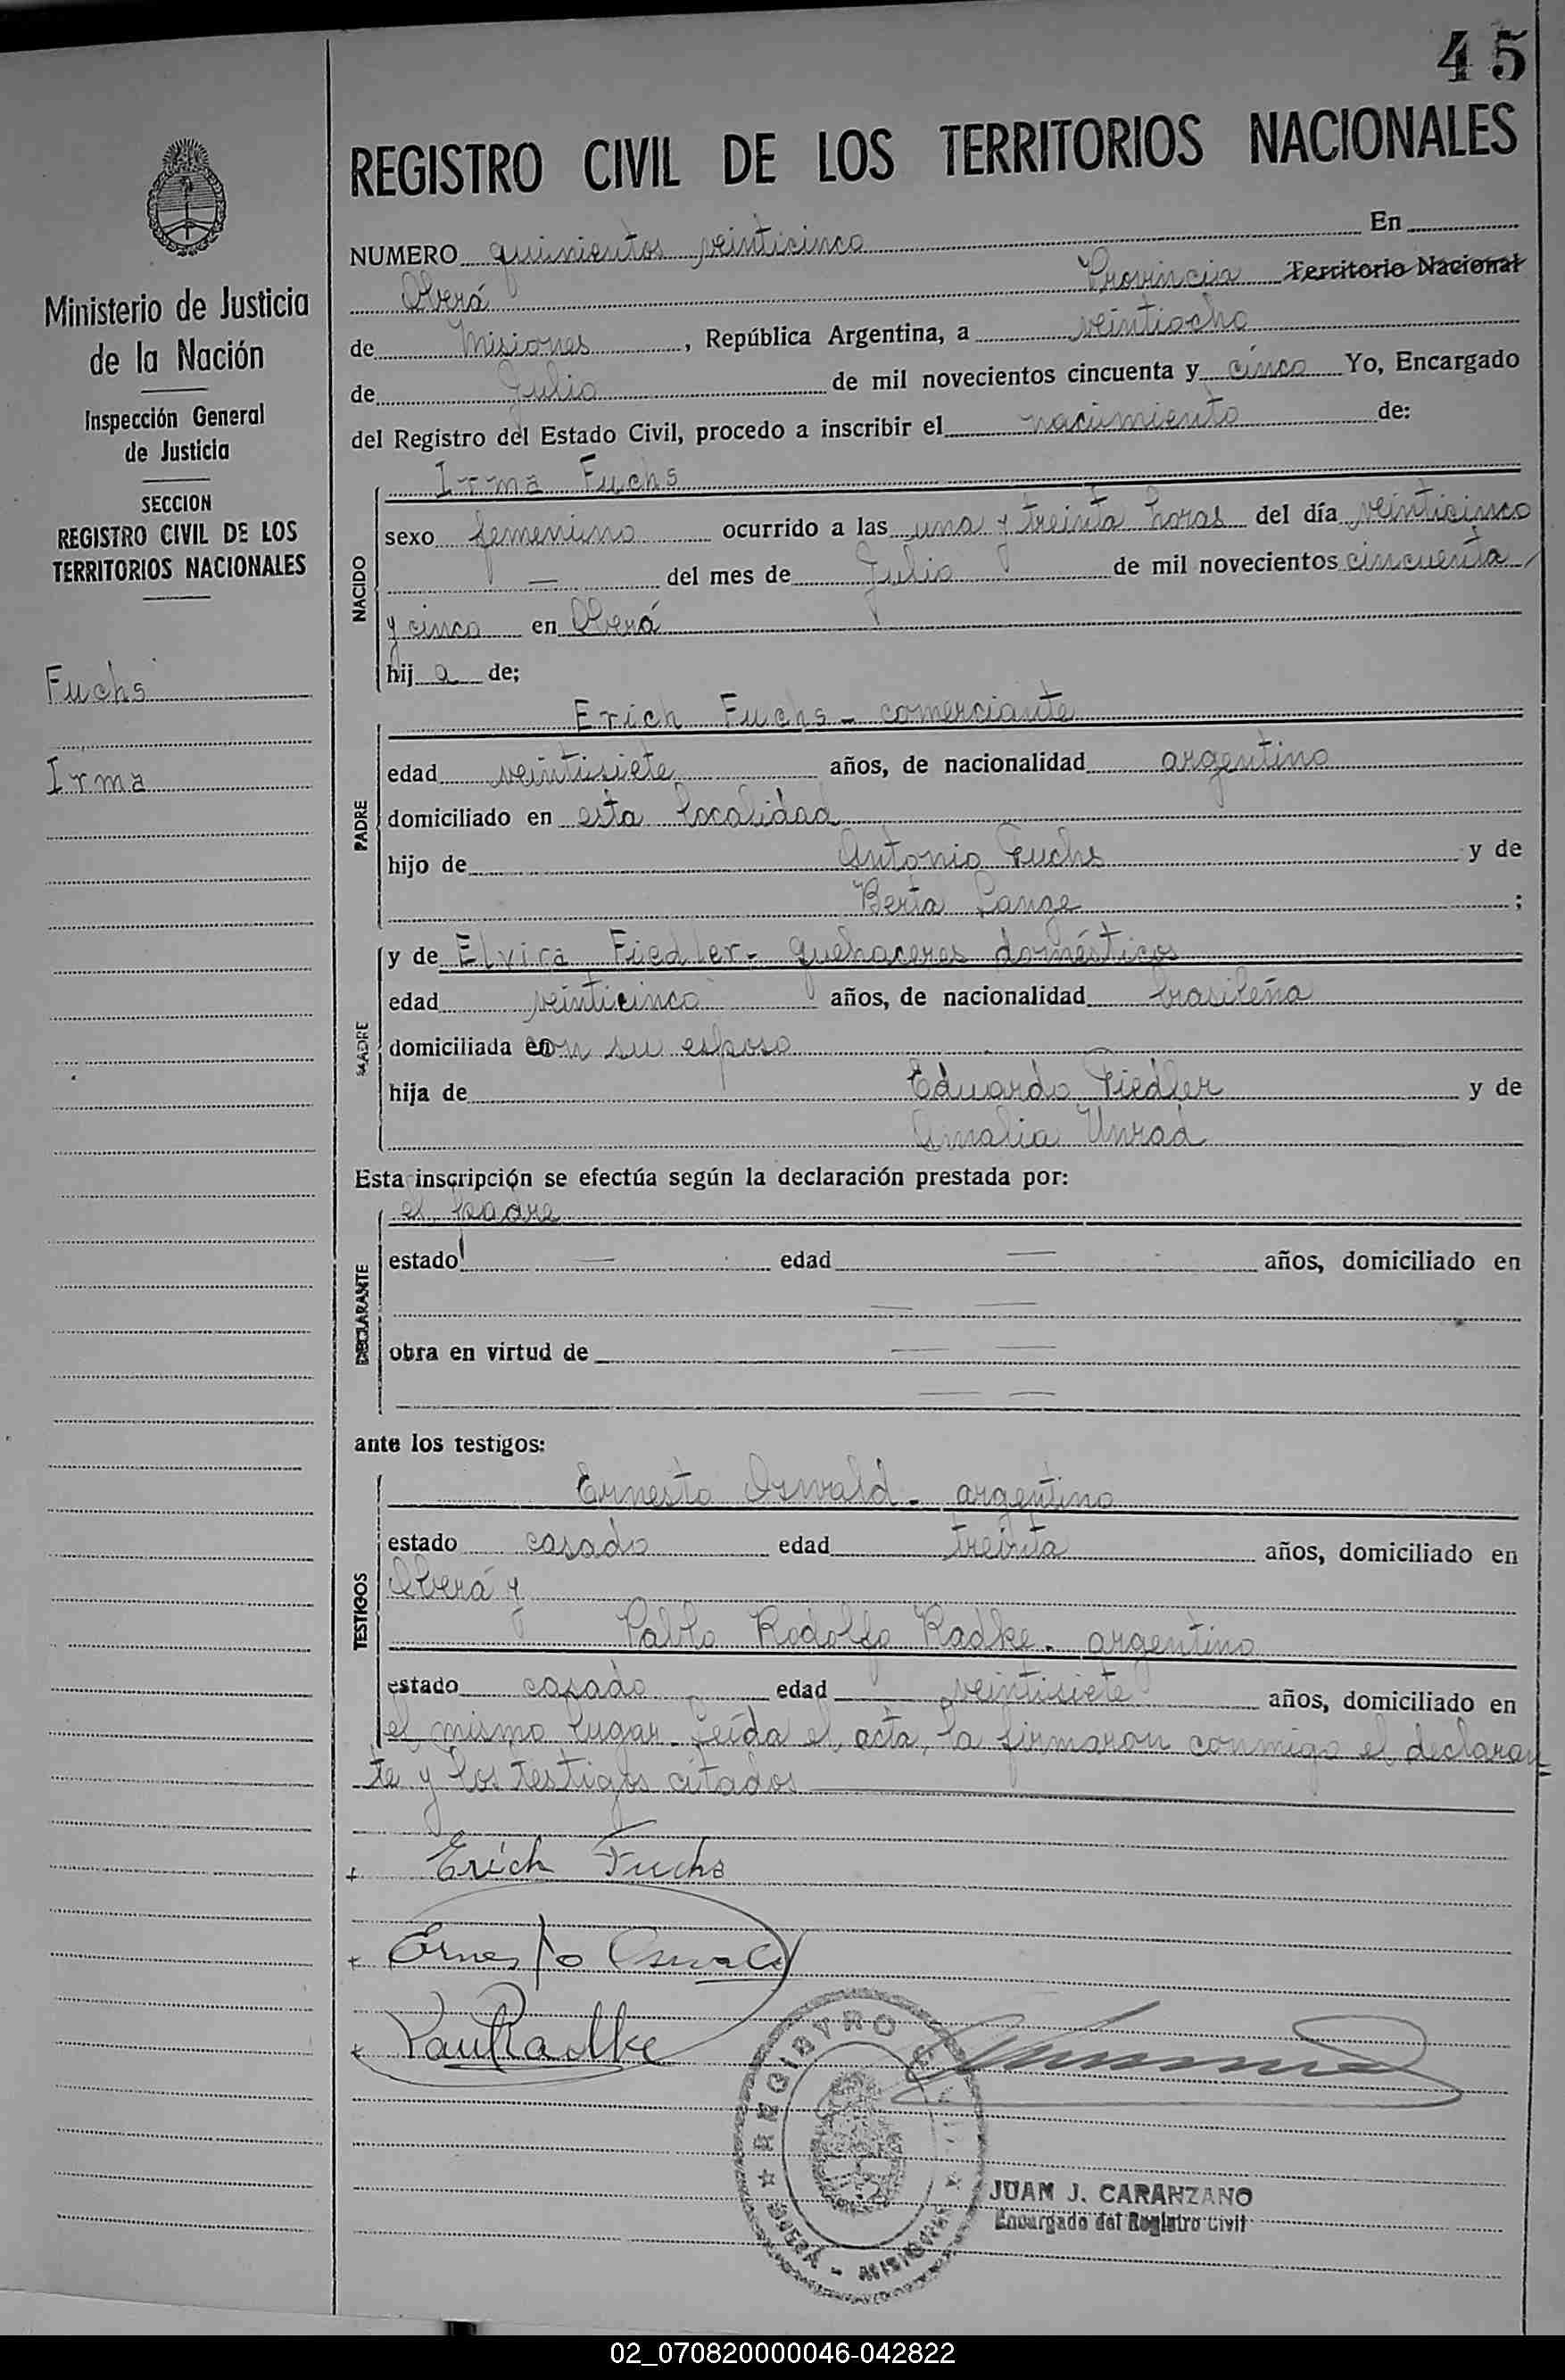 45
REGISTRO CIVIL DE LOS TERRITORIOS NACIONALES
Ministerio de Justicia
de la Nación
Inspección General
de Justicia
SECCION
REGISTRO CIVIL DE LOS
TERRITORIOS NACIONALES
Fuchs
Irma
NUMERO quinientos veinticinco En
Oberá Provincia Territorio Nacional
de Misiones, República Argentina, a veintiocho
de Julio de mil novecientos cincuenta y cinco Yo, Encargado
del Registro del Estado Civil, procedo a inscribir el nacimiento de:
NACIDO
Irma Fuchs
sexo femenino ocurrido a las una y treinta horas del día veinticinco
— del mes de Julio de mil novecientos cincuenta
y cinco en Oberá
hij a de;
PADRE
Erich Fuchs - comerciante
edad veintisiete años, de nacionalidad argentino
domiciliado en esta localidad
hijo de Antonio Fuchs y de
Berta Lange ;
MADRE
y de Elvira Fiedler - quehaceres domésticos
edad veinticinco años, de nacionalidad brasileña
domiciliada con su esposo
hija de Eduardo Fiedler y de
Amalia Unrad
Esta inscripción se efectúa según la declaración prestada por:
DECLARANTE
el padre
estado — edad — años, domiciliado en
— —
obra en virtud de — —
— —
ante los testigos:
TESTIGOS
Ernesto Oswald - argentino
estado casado edad treinta años, domiciliado en
Oberá y
Pablo Rodolfo Radke - argentino
estado casado edad veintisiete años, domiciliado en
el mismo lugar. Leída el acta, la firmaron conmigo el declaran
te y los testigos citados
+ Erich Fuchs
+ Ernesto Oswald
+ Paul Radke
REGISTRO CIVIL
OBERÁ - MISIONES
JUAN J. CARANZANO
Encargado del Registro Civil
02_070820000046-042822